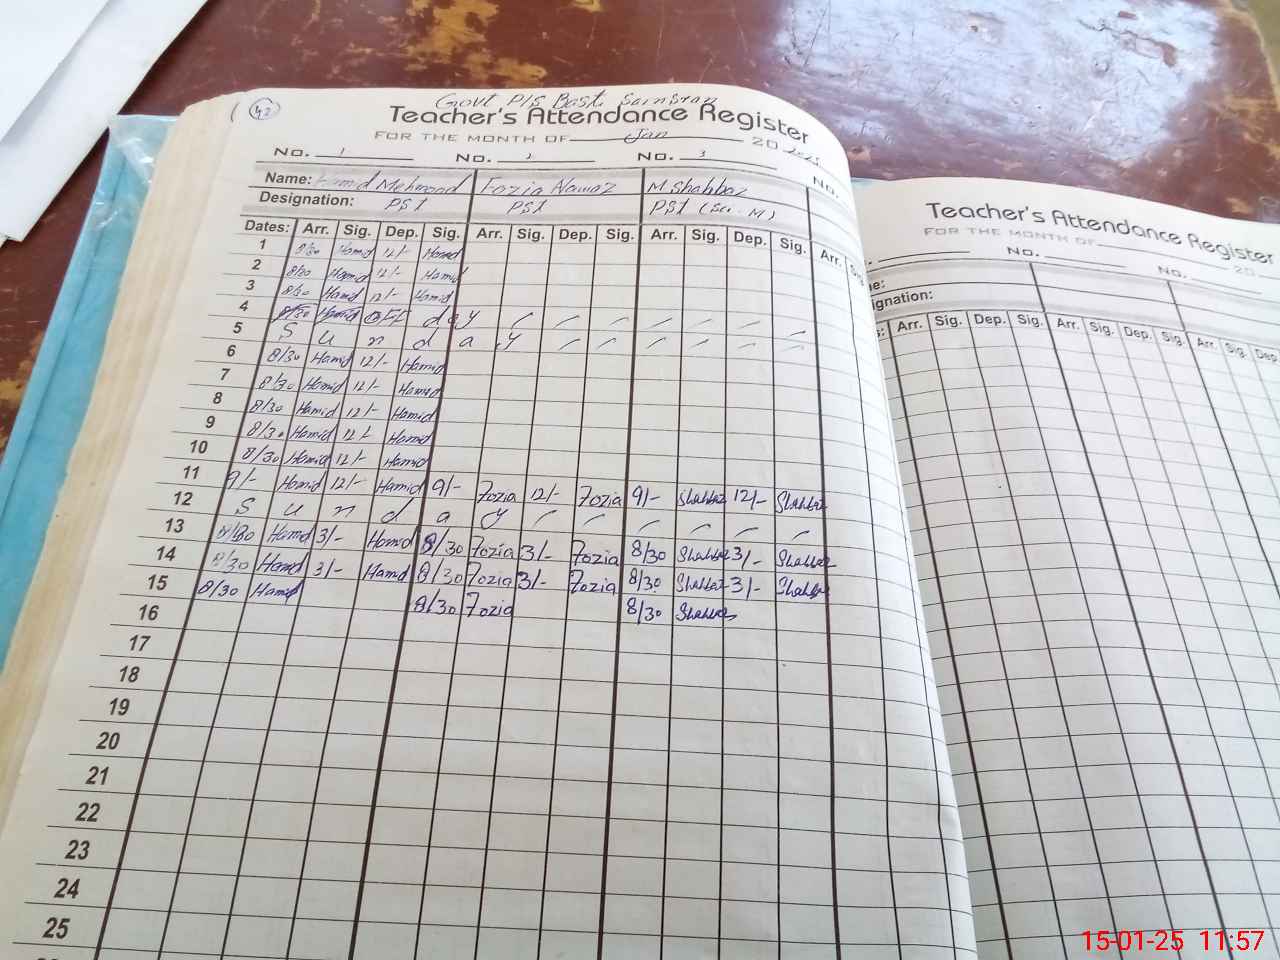 42
Govt P/S Basti
Teacher's Attendance Register
FOR THE MONTH OF Jan 20 2025
No. 1 No. 2 No. 3 No.
Name: Hamid Mehmood Fozia Nawaz M Shahbaz
Designation: PST PST PST (Sci-M)
Dates: Arr. Sig. Dep. Sig. Arr. Sig. Dep. Sig. Arr. Sig. Dep. Sig. Arr.
1 8/30 Hamid 12/- Hamid
2 8/30 Hamid 12/- Hamid
3 8/30 Hamid 12/- Hamid
4 8/30 Hamid OFF day
5 S u n d a y
6 8/30 Hamid 12/- Hamid
7 8/30 Hamid 12/- Hamid
8 8/30 Hamid 12/- Hamid
9 8/30 Hamid 12/- Hamid
10 8/30 Hamid 12/- Hamid
11 9/- Hamid 12/- Hamid 9/- Fozia 12/- Fozia 9/- Shahbaz 12/- Shahbaz
12 S u n d a y
13 8/30 Hamid 3/- Hamid 8/30 Fozia 3/- Fozia 8/30 Shahbaz 3/- Shahbaz
14 8/30 Hamid 3/- Hamid 8/30 Fozia 3/- Fozia 8/30 Shahbaz 3/- Shahbaz
15 8/30 Hamid 8/30 Fozia 8/30 Shahbaz
16
17
18
19
20
21
22
23
24
25
Teacher's Attendance Register
FOR THE MONTH OF 20
No. No.
Arr. Sig. Dep. Sig. Arr. Sig. Dep. Sig. Arr. Sig. Dep.
15-01-25 11:57